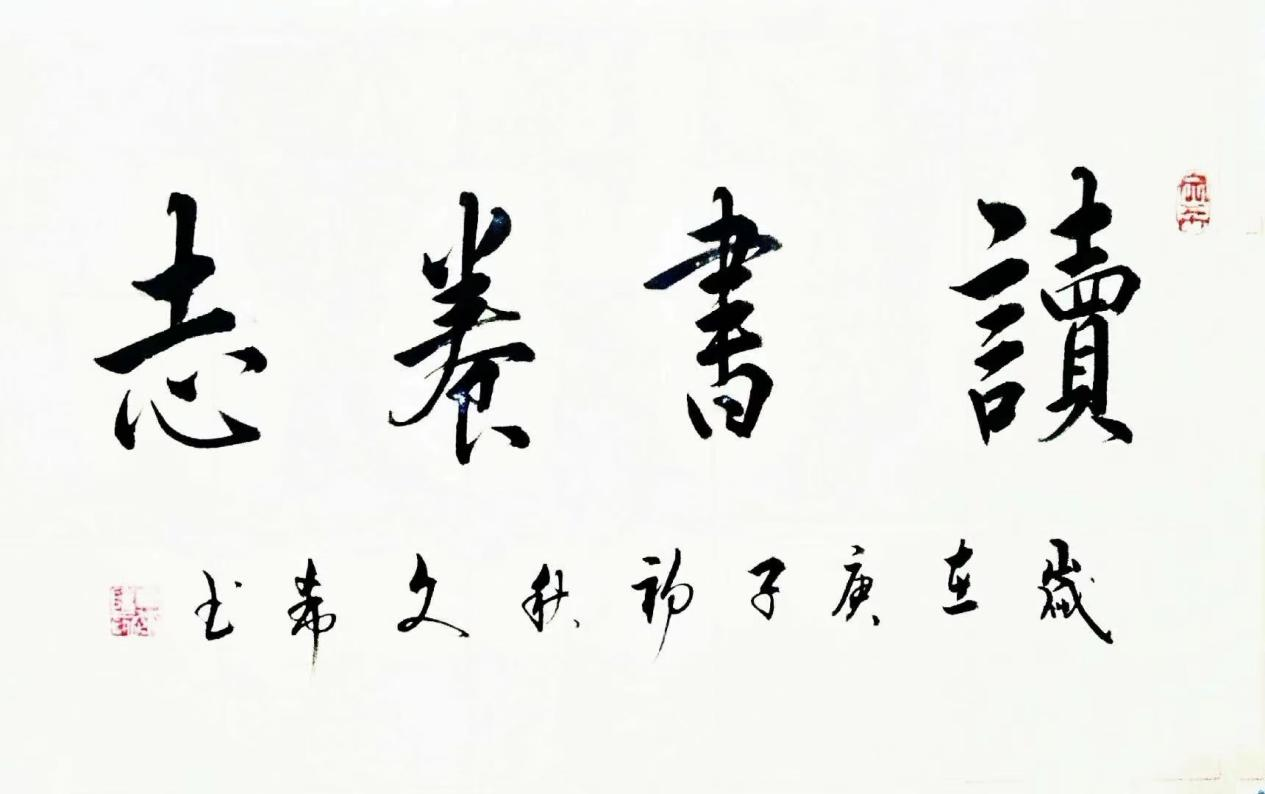 讀書養志
歲在庚子初秋文希书